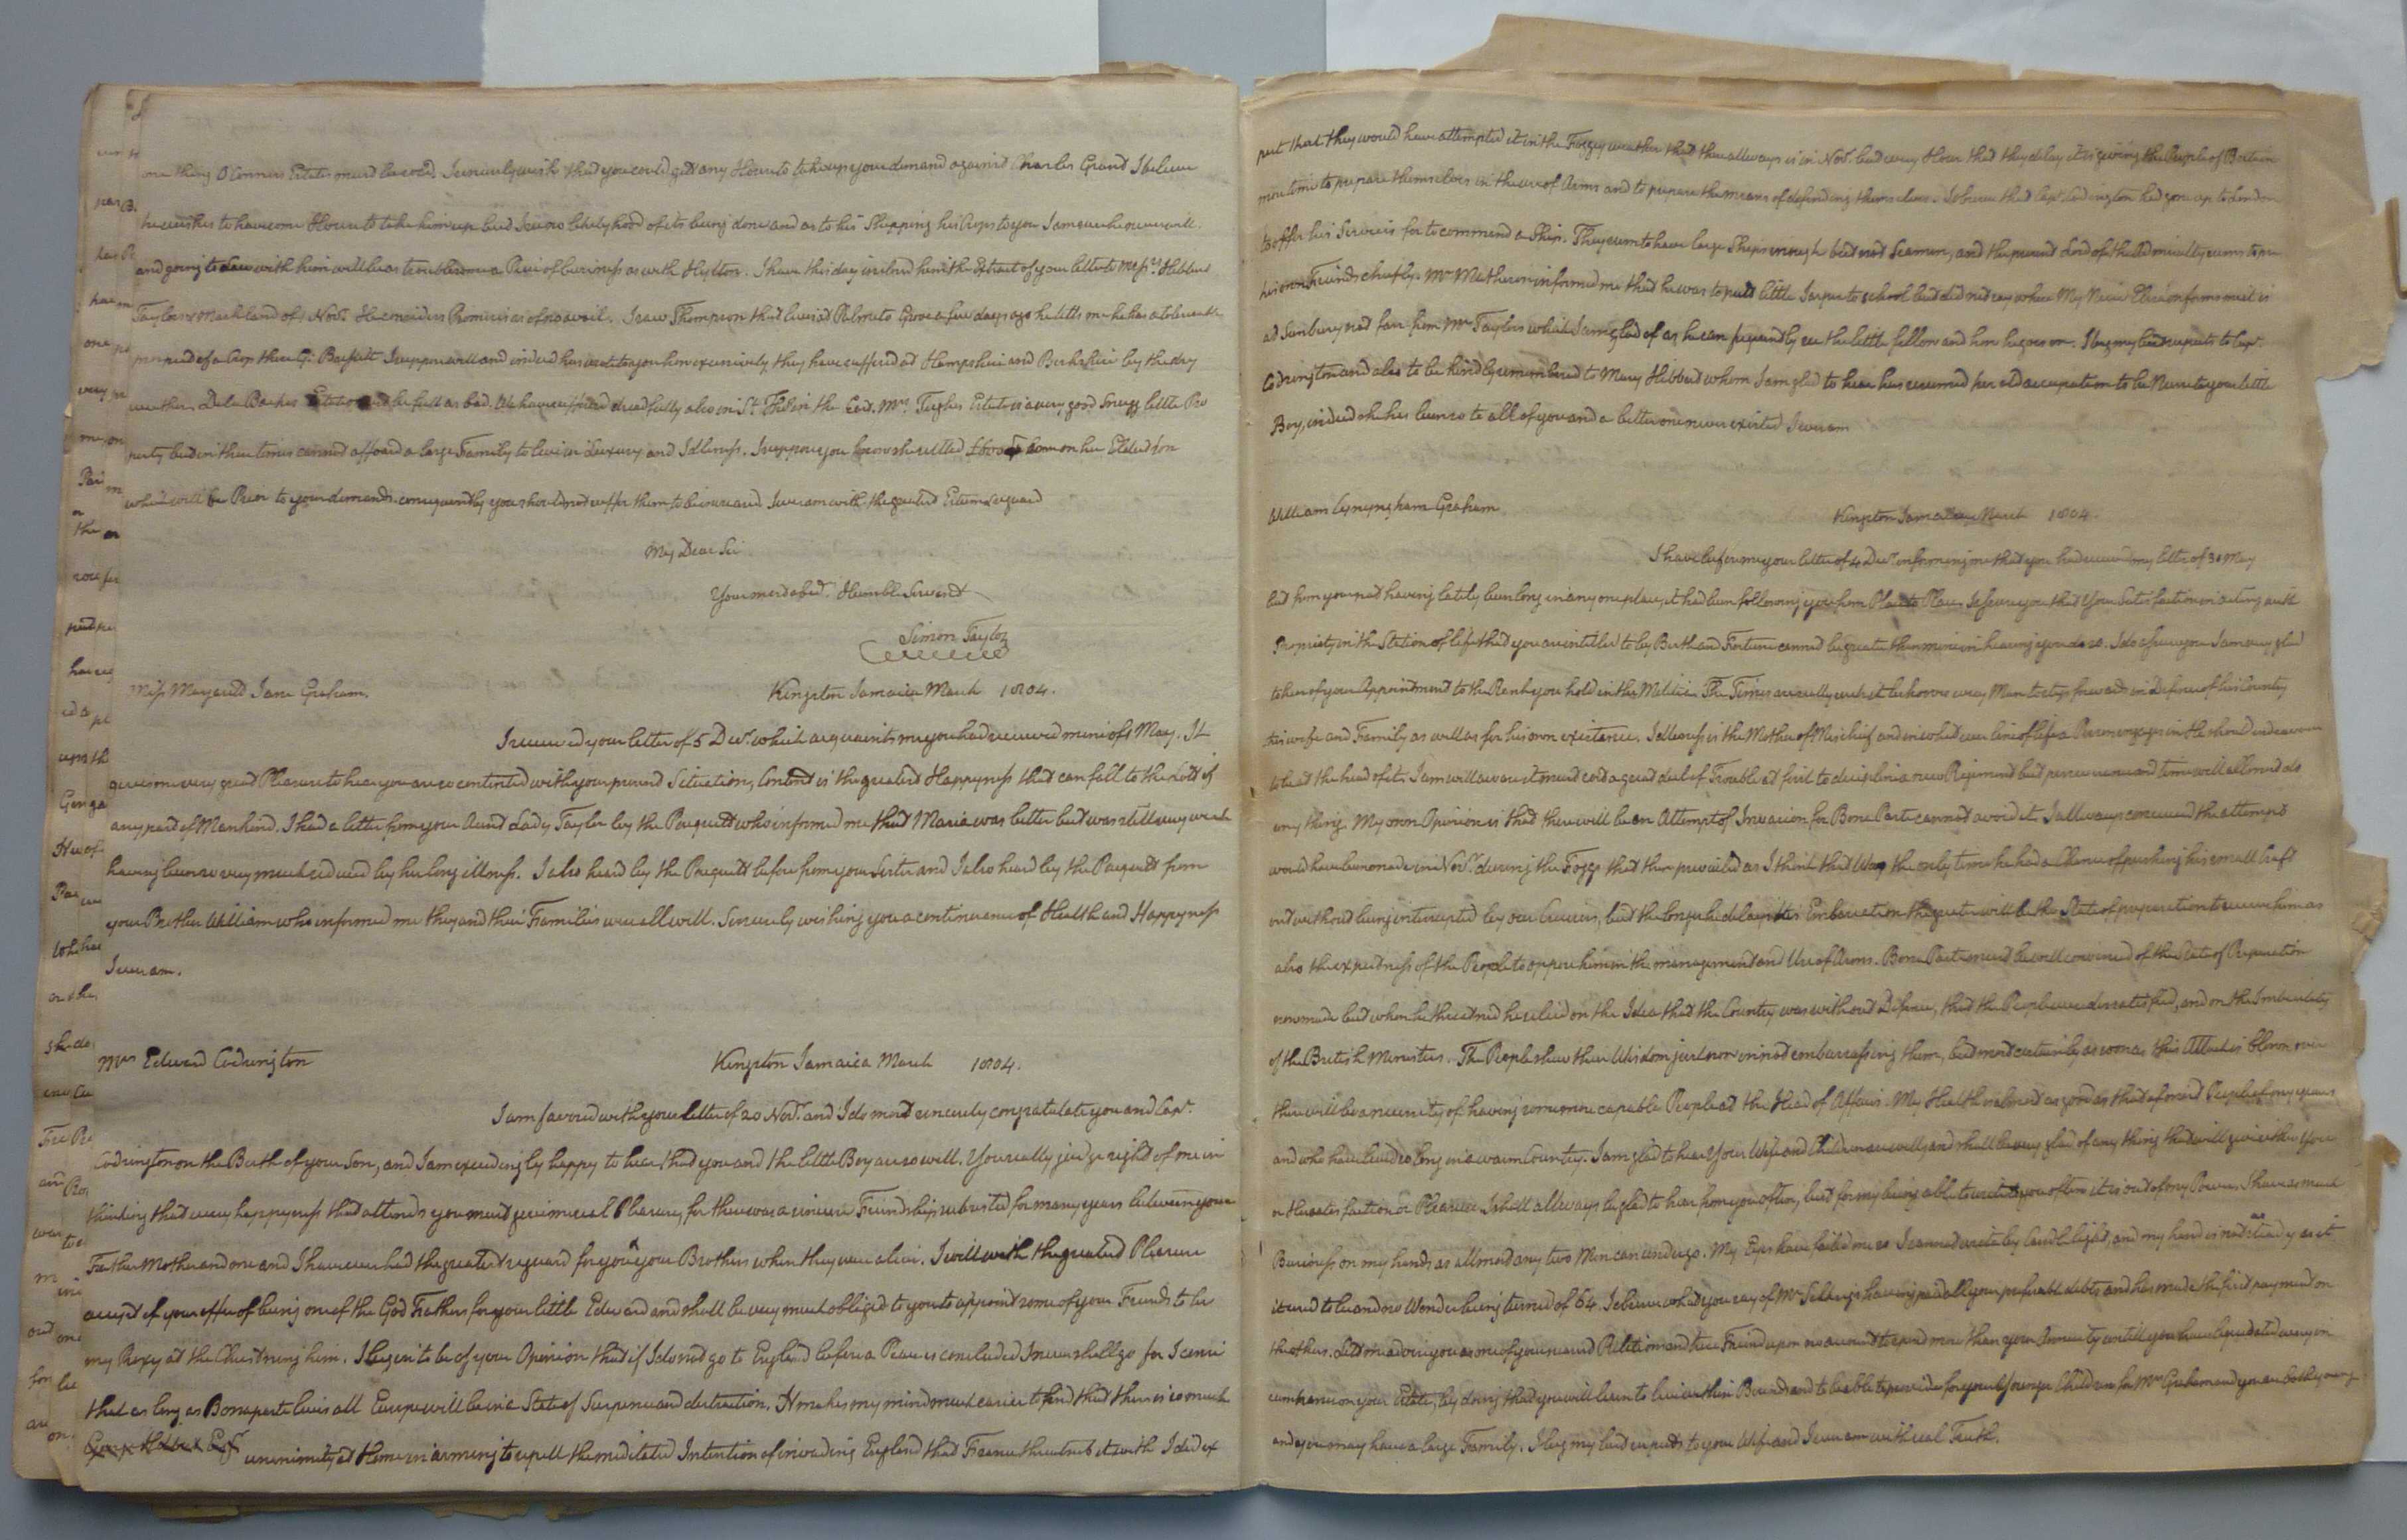 one thing O Connors Estates must be sold. I sincerely wish that you could get any House to take up your demand against Charles Grant I believe
he wishes to have some House to take him up but I see no likelyhood of its being done and as to his Shipping his Crops to you I am sure he never will.
and going to Law with him will be as troublesome a Piece of business as with Hylton. I have this day inclosed him the Extract of your letter to Messrs Hibbert
Taylor & Markland of Novr. He considers Promises as of no avail. I saw Thompson that lives at Palmeto Grove a few days ago he tells me he has a tolerable
prospect of a Crop there Gi: Bassett I suppose will and indeed has wrote to you how excessively they have suffered at Hampshire and Berkshire by the dry
weather, Dela Baches Estates will be full as bad. We have suffered dreadfully also in St. Thos in the East. Mrs. Taylers Estate is a very good Snugg little Pro
perty but in these times cannot afford a large Family to live in Luxury and Idleness. I suppose you know she settled on her Eldest Son
which will be Prior to your demands. consequently you should not suffer them to be increased. I ever am with the greatest Esteem & regard
My Dear Sir
Your most obed. Humble Servant
Simon Taylor
Miss Margarett Jane Graham. Kingston Jamaica March 1804.
I received your letter of 5 Decr. which acquaints me you had received mine of May. It
gives me very great Pleasure to hear you are so contented with your present Situation, Content is the greatest Happyness that can fall to the Lott of
any part of Mankind. I had a letter from your Aunt Lady Taylor by the Pacquett who informed me that Maria was better but was still very weak
having been so very much reduced by her long illness. I also heard by the Pacquett before from your Sister and I also heard by the Pacquett from
your Brother William who informed me they and their Families were all well. Sincerely wishing you a continuance of Health and Happyness
I ever am.
Mrs Edward Codrington Kingston Jamaica March 1804.
I am favored with your letter of 20 Novr. and I do most sincerely congratulate you and Capt.
Codrington on the Birth of your Son, and I am exceedingly happy to hear that you and the little Boy are so well. You really judge right of me in
thinking that every happyness that attends you must give me real Pleasure, for there was a sincere Friendship subsisted for many years between your
Father Mother and me and I have ever had the greatest regard for you & your Brothers when they were alive. I will with the greatest Pleasure
accept of your offer of being one of the God Fathers for your little Edward and shall be very much obliged to you to appoint some of your Friends to be
my Proxy at the Christning him. I begin to be of your Opinion that if I do not go to England before a Peace is concluded I never shall go for I conceive
that as long as Bonaparte lives all Europe will be in a State of Suspense and distraction. It makes my mind much easier to find that there is so much
unanimity at Home in arming to repell the meditated Intention of invading England that France threatens it with I did ex
pect that they would have attempted it in the Foggy weather that there allways is in Novr. but every Hour that they delay it is giving the People of Britain
more time to prepare themselves in the use of Arms and to prepare the means of defending themselves. I observe that Capt. Codrington had gone up to London
to offer his Services for to command a Ship. They seem to have large Ships enough but not Seamen, and the present Lord of the Admiralty seems to
his own Friends chiefly. Mr Matheson informed me that he was to putt little Jasper to school but did not say where My Niece Eliza informs me it is
at Sunbury not far from Mr Taylors which I am glad of as he can frequently see the little fellow and how he goes on. I beg my best respects to Capt.
Codrington and also to be kindly remembered to Mary Hibbert whom I am glad to hear has resumed her old occupation to be Nurse to your little
Boy, indeed she has been so to all of you and a better one never existed I ever am
William Cunyngham Graham Kingston Jamaica March 1804.
I have before me your letter of 4 Decr. informing me that you had received my letter of 30 May
but from your not having lately been long in any one place, it had been following you from Place to Place. I assure you that Your Satisfaction in acting with
Propriety in the Station of life that you are intitled to by Birth and Fortune cannot be greater than mine in hearing you do so. I do assure you I am very glad
to hear of your Appointment to the Rank you hold in the Militia. The Times are really such it behoves every Man to step forward in Defence of his Country
his wife and Family as well as for his own existence. Idleness is the Mother of Mischief and in what ever line of life a Person engages in He should endeavour
to be at the head of it. I am will aware it must cost a great deal of Trouble at first to discipline a new Regiment but perseverance and time will allmost do
any thing. My own Opinion is that there will be an Attempt of Invasion for Bona Parte cannot avoid it I allways conceived the attempt
would have been made in Novr. during the Foggs that then prevailed as I think that was the only time he had a Chance of pushing his small Craft
out without being interrupted by our Cruisers, but the longer he delays his Embarcation the greater will be the State of preparation to receive him as
also the expertness of the People to oppose him in the management and Use of Arms. Bona Parte must be well convinced of the State of Preparation
now made but when he threatned he relied on the Idea that the Country was without Defence, that the People were dissatisfied, and on the Imbecility
of the British Ministers. The People shew their Wisdom just now in not embarrassing them, but most certainly as soon as this Attack is blown over
there will be a necessity of having some more capable People at the Head of Affairs. My Health is almost as good as that of most People of my years
and who have lived so long in a warm Country. I am glad to hear Your Wife and Children are well and shall be very glad of any thing that will give either You
or Her satisfaction or Pleasure. I shall allways be glad to hear from you often, but for my being able to write to you often it is out of my Power. I have as much
Business on my hands as allmost any two Men can undergo. My Eyes have failed me so I cannot write by Candle light, and my hand is not as steady as it
used to be and no Wonder being turned of 64. I observe what you say of Mr having paid all your debts and has made the first payment on
the others. Lett me advise you as one of your nearest Relations and true Friend upon no account to spend more than your Income untill you have liquidated every in
cumbrance on your Estate, by doing that you will learn to live within Bounds and to be able to provide for your Younger Children for Mrs Graham and you are both young
and you may have a large Family. I beg my best respects to your Wife and I ever am with real Truth.